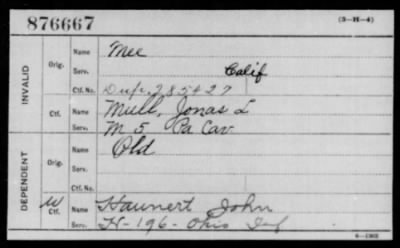 876667
(3-H-4)
INVALID
Orig.
Name Mee
Serv. Calif
Ctf. No. Dup. 285427
Ctf.
Name Mull, Jonas L
Serv. M 5 Pa Cav
DEPENDENT
Orig.
Name Old
Serv.
Ctf. No.
W
Ctf.
Name Haunert John
Serv. H-196-Ohio Inf